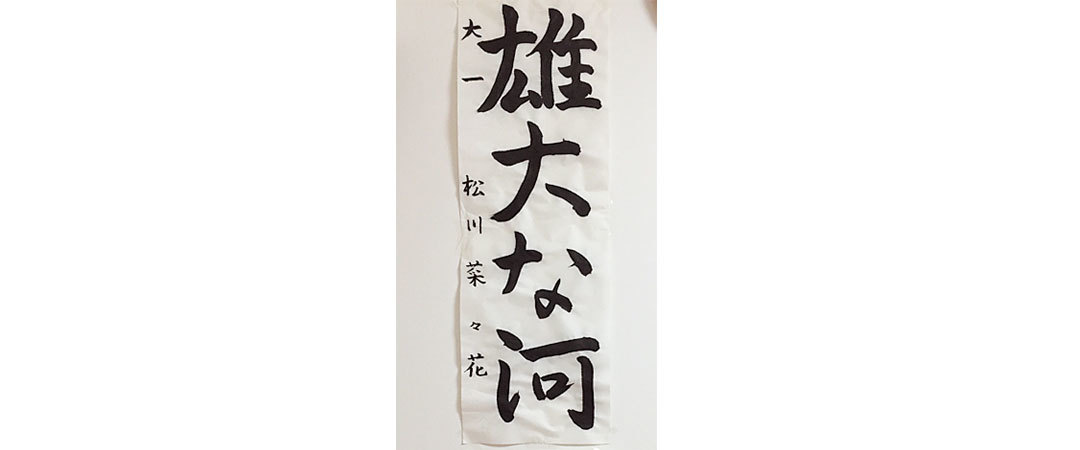 雄大な河
大一 松川菜々花